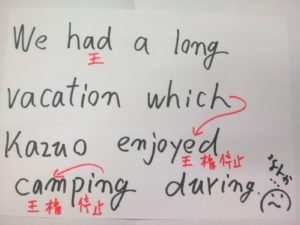 We had a long
王
vacation which
Kazuo enjoyed
王 権 停止
camping during.
王 権 停止
なんか